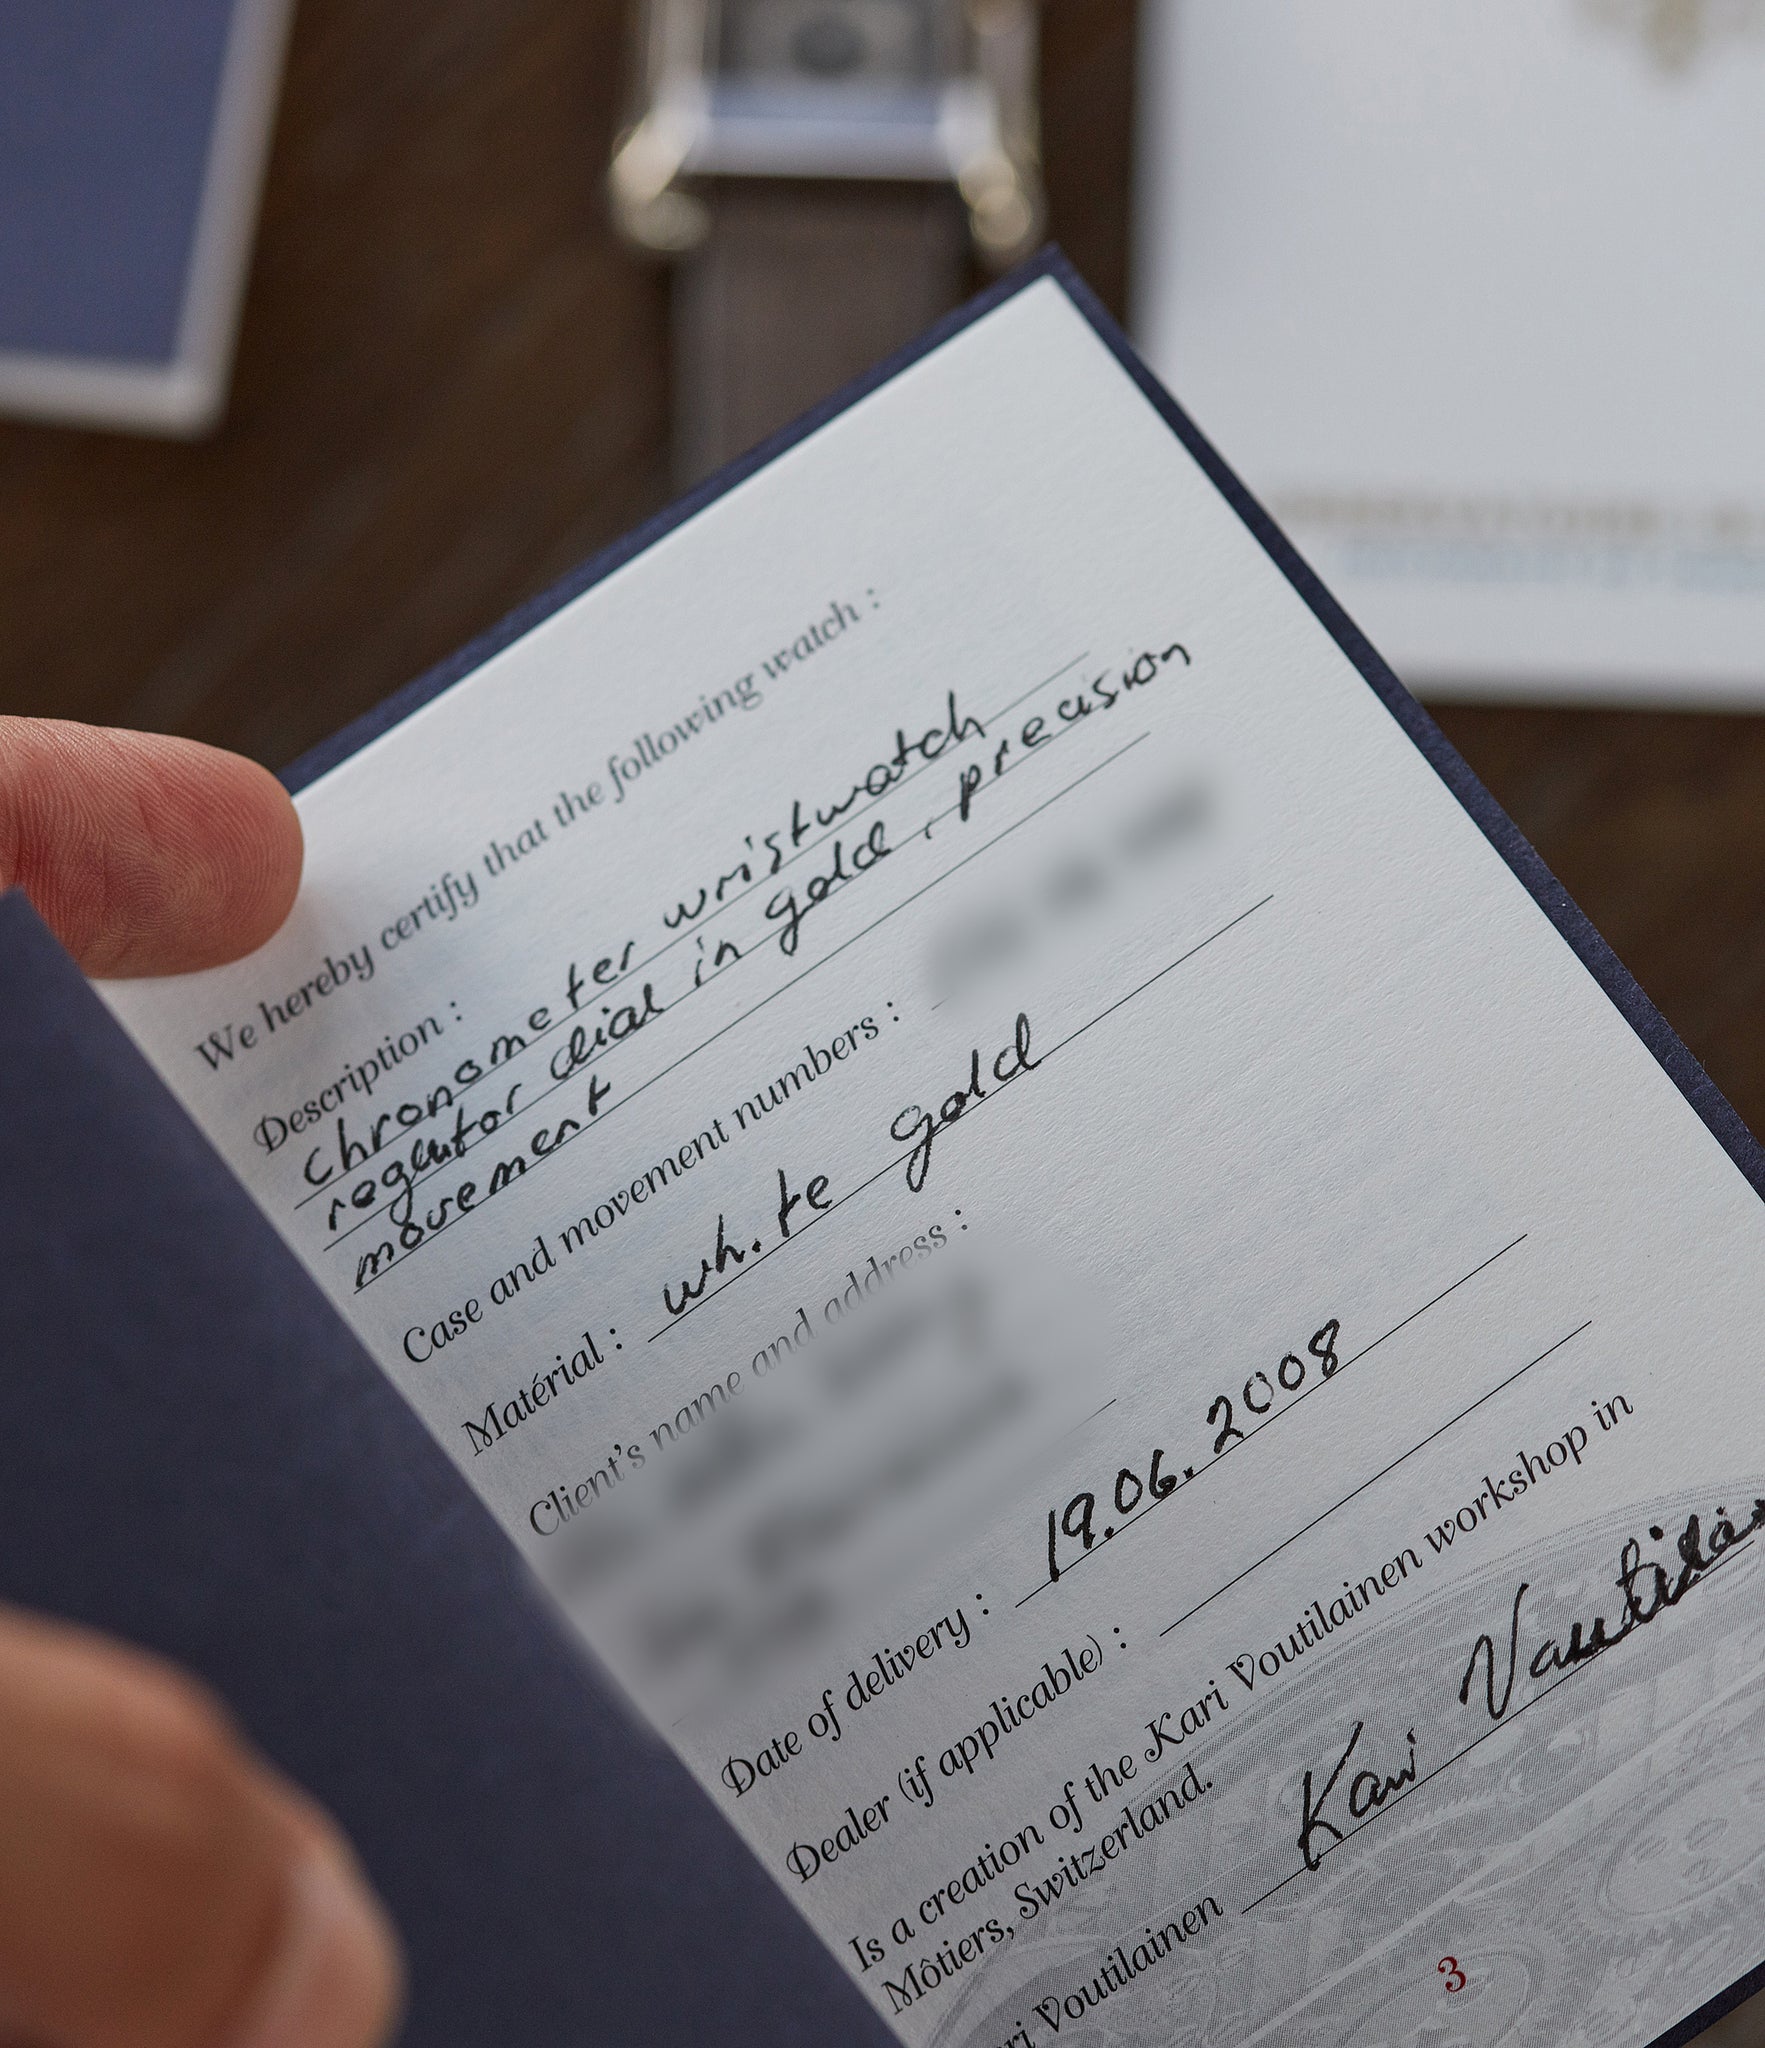 We hereby certify that the following watch :
Description :
chronometer wristwatch
reglutor dial in gold, precision
movement
Case and movement numbers :
Matérial : white gold
Client's name and address :
Date of delivery : 19.06.2008
Dealer (if applicable) :
Is a creation of the Kari Voutilainen workshop in
Môtiers, Switzerland.
ri Voutilainen Kari Voutilai
3